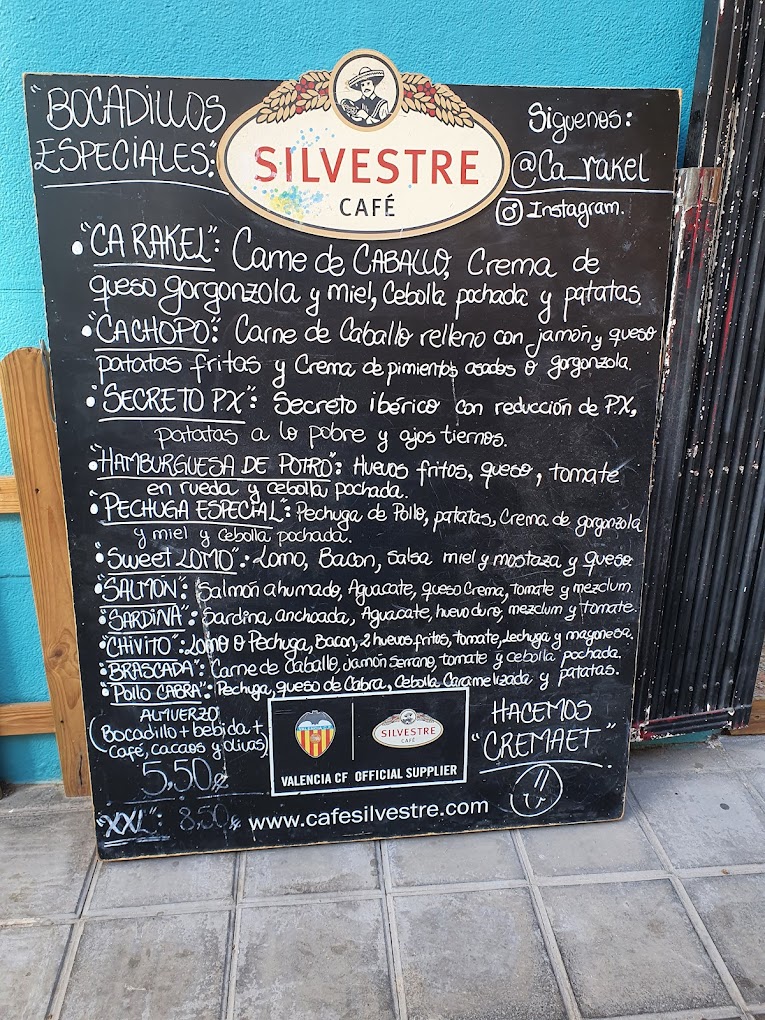 "BOCADILLOS
ESPECIALES":
SILVESTRE
CAFÉ
Siguenos:
@Ca_rakel
Instagram.
• "CA RAKEL": Carne de CABALLO, Crema de
queso gorgonzola y miel, Cebolla pochada y patatas.
• "CACHOPO": Carne de Caballo relleno con jamón y queso
patatas fritas y Crema de pimientos asados o gorgonzola.
• "SECRETO P.X": Secreto ibérico con reducción de P.X,
patatas a lo pobre y ajos tiernos.
• "HAMBURGUESA DE POTRO": Huevos fritos, queso, tomate
en rueda y cebolla pochada.
• "PECHUGA ESPECIAL": Pechuga de Pollo, patatas, Crema de gorgonzola
y miel y cebolla pochada.
• "Sweet LOMO": Lomo, Bacon, salsa miel y mostaza y queso.
• "SALMÓN": Salmón ahumado, Aguacate, queso Crema, tomate y mezclum.
• "SARDINA": Sardina anchoada, Aguacate, huevo duro, mezclum y tomate.
• "CHIVITO": Lomo o Pechuga, Bacon, 2 huevos fritos, tomate, lechuga y mayonesa.
• "BRASCADA": Carne de Caballo, jamón serrano, tomate y cebolla pochada.
• "Pollo CABRA": Pechuga, queso de Cabra, Cebolla Caramelizada y patatas.
ALMUERZO
(Bocadillo + bebida +
Café, cacaos y olivas)
5,50€
"XXL": 8,50€
SILVESTRE
CAFÉ
VALENCIA CF OFFICIAL SUPPLIER
www.cafesilvestre.com
HACEMOS
"CREMAET"